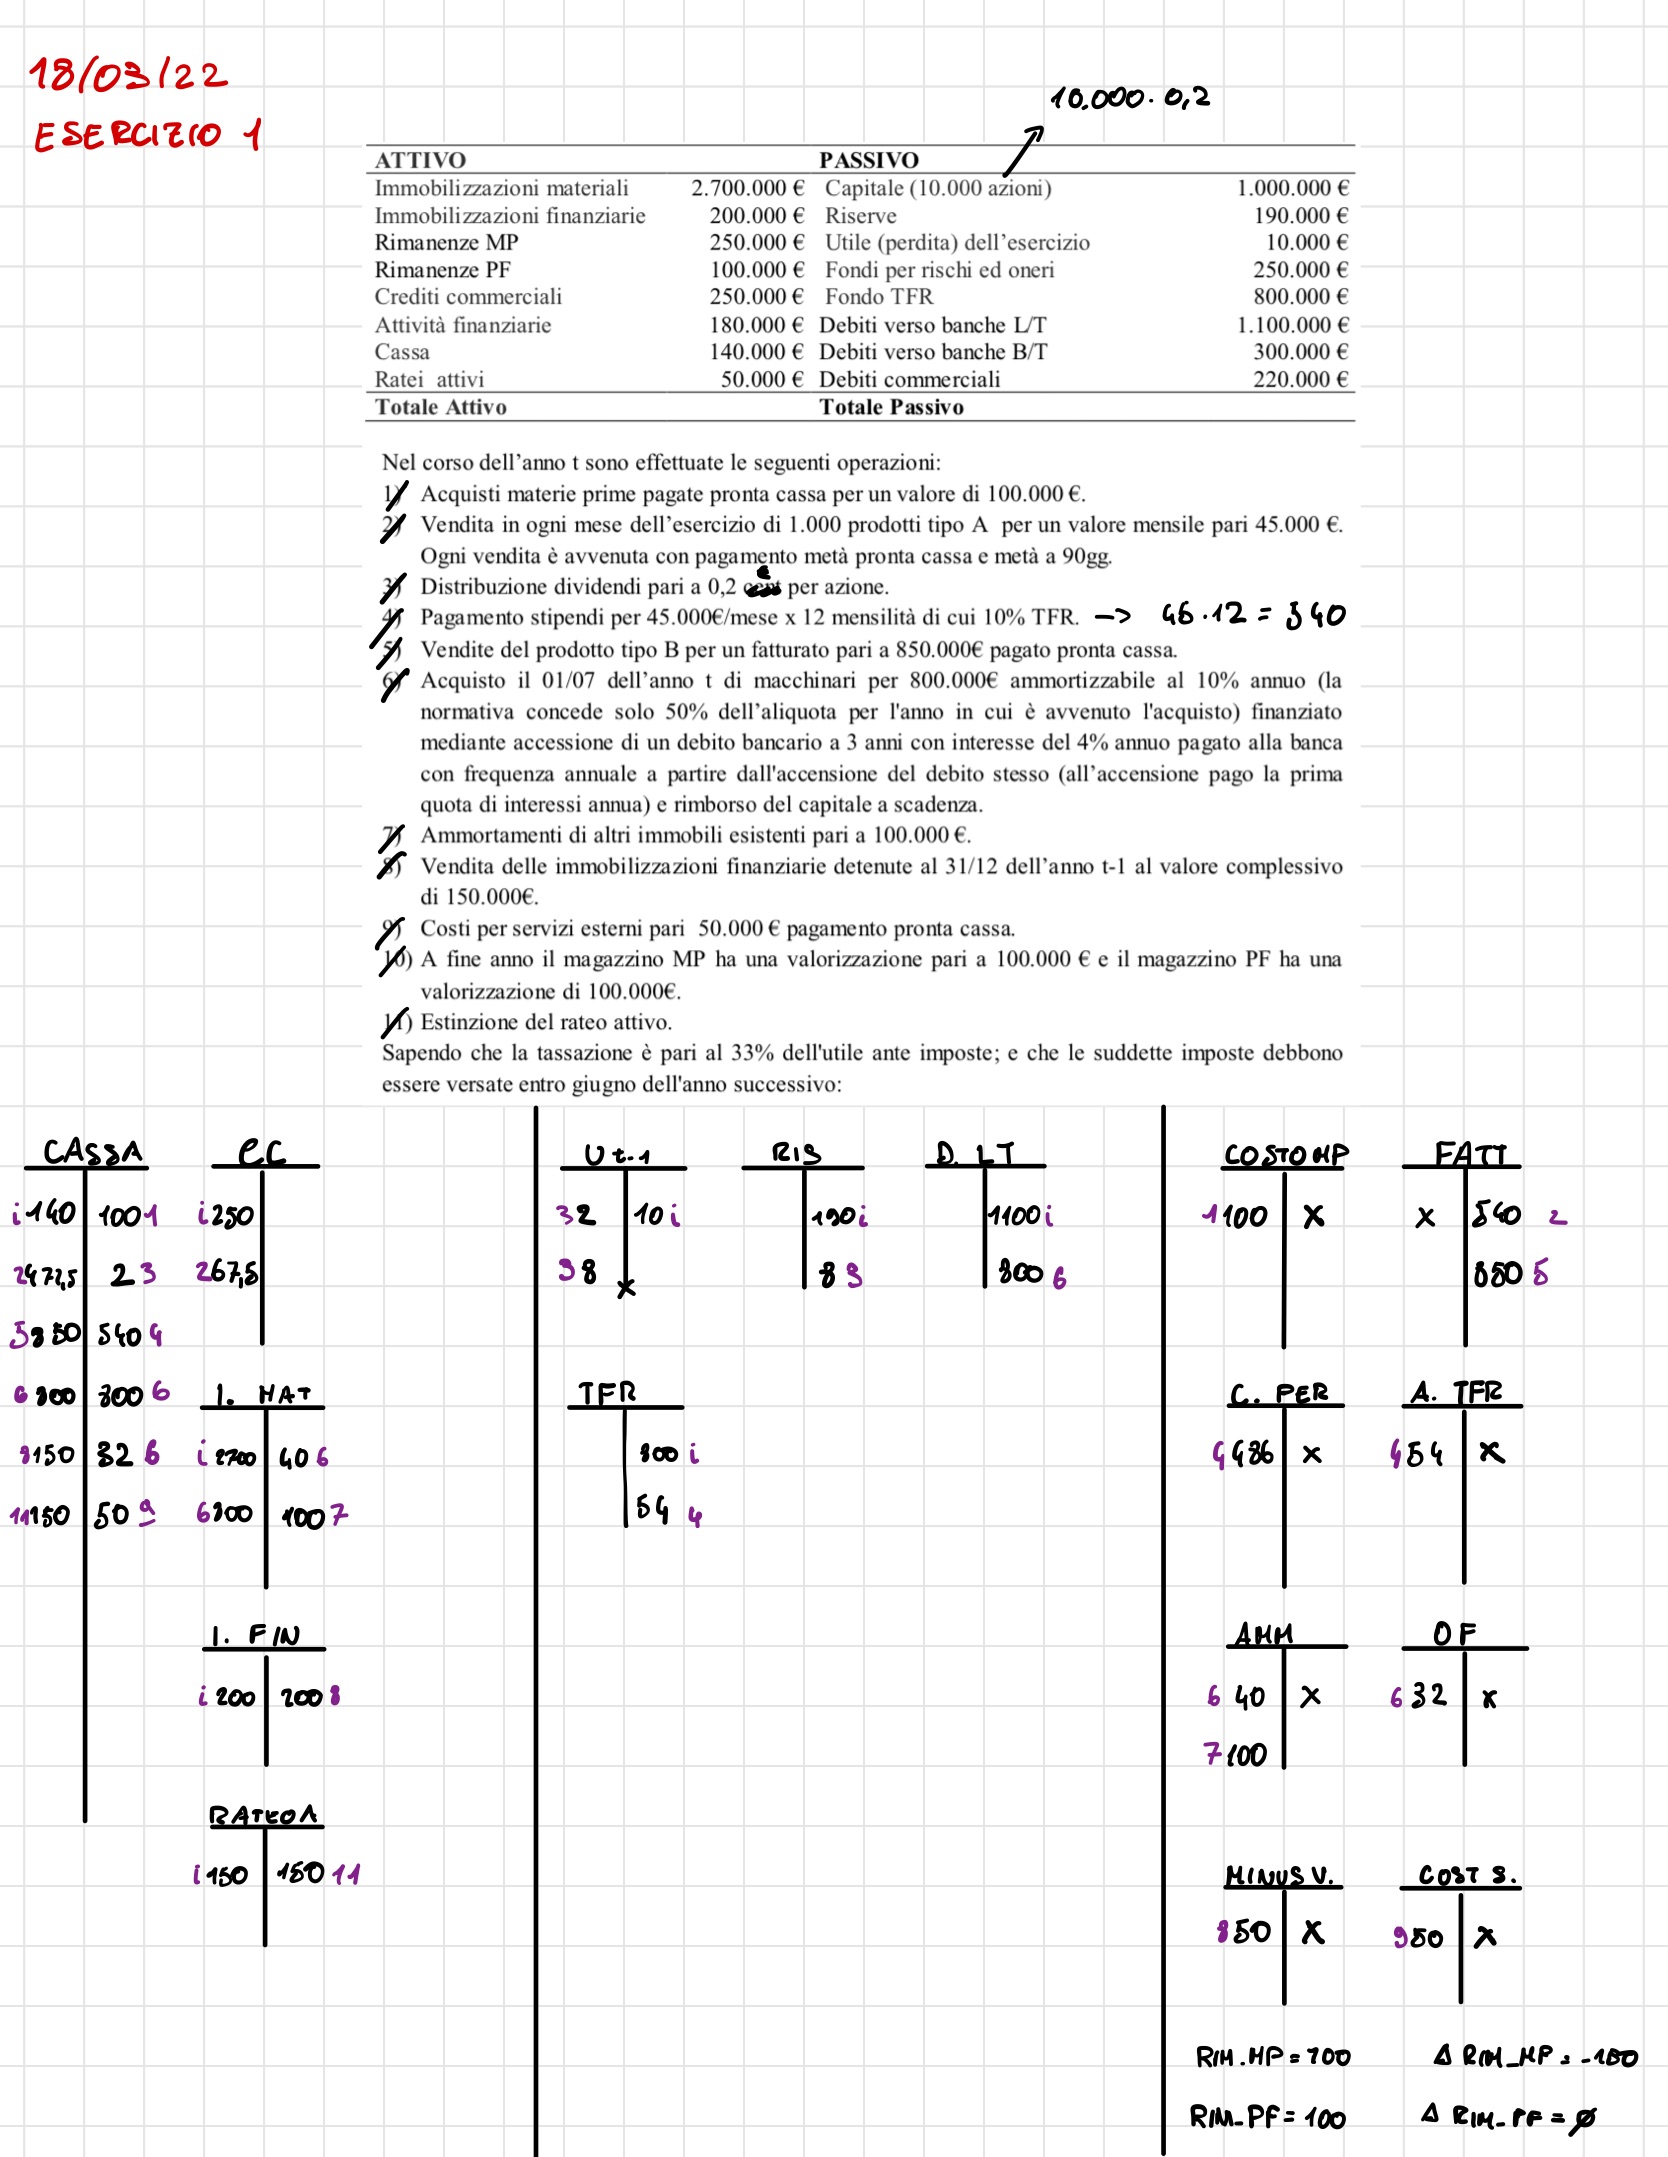 18/03/22
ESERCIZIO 1
10.000 · 0,2
ATTIVO PASSIVO
Immobilizzazioni materiali 2.700.000 € Capitale (10.000 azioni) 1.000.000 €
Immobilizzazioni finanziarie 200.000 € Riserve 190.000 €
Rimanenze MP 250.000 € Utile (perdita) dell'esercizio 10.000 €
Rimanenze PF 100.000 € Fondi per rischi ed oneri 250.000 €
Crediti commerciali 250.000 € Fondo TFR 800.000 €
Attività finanziarie 180.000 € Debiti verso banche L/T 1.100.000 €
Cassa 140.000 € Debiti verso banche B/T 300.000 €
Ratei attivi 50.000 € Debiti commerciali 220.000 €
Totale Attivo Totale Passivo
Nel corso dell'anno t sono effettuate le seguenti operazioni:
1) Acquisti materie prime pagate pronta cassa per un valore di 100.000 €.
2) Vendita in ogni mese dell'esercizio di 1.000 prodotti tipo A per un valore mensile pari 45.000 €.
Ogni vendita è avvenuta con pagamento metà pronta cassa e metà a 90gg.
€
3) Distribuzione dividendi pari a 0,2 cent per azione.
4) Pagamento stipendi per 45.000€/mese x 12 mensilità di cui 10% TFR. -> 45 · 12 = 540
5) Vendite del prodotto tipo B per un fatturato pari a 850.000€ pagato pronta cassa.
6) Acquisto il 01/07 dell'anno t di macchinari per 800.000€ ammortizzabile al 10% annuo (la
normativa concede solo 50% dell'aliquota per l'anno in cui è avvenuto l'acquisto) finanziato
mediante accessione di un debito bancario a 3 anni con interesse del 4% annuo pagato alla banca
con frequenza annuale a partire dall'accensione del debito stesso (all'accensione pago la prima
quota di interessi annua) e rimborso del capitale a scadenza.
7) Ammortamenti di altri immobili esistenti pari a 100.000 €.
8) Vendita delle immobilizzazioni finanziarie detenute al 31/12 dell'anno t-1 al valore complessivo
di 150.000€.
9) Costi per servizi esterni pari 50.000 € pagamento pronta cassa.
10) A fine anno il magazzino MP ha una valorizzazione pari a 100.000 € e il magazzino PF ha una
valorizzazione di 100.000€.
11) Estinzione del rateo attivo.
Sapendo che la tassazione è pari al 33% dell'utile ante imposte; e che le suddette imposte debbono
essere versate entro giugno dell'anno successivo:
CASSA CC Ut-1 RIS D. LT COSTO MP FATT
i 140 100 1 i 250 3 2 10 i 190 i 1100 i 1 100 x x 540 2
2 472,5 2 3 2 67,5 3 8 x 8 3 800 6 850 5
5 850 540 4
6 800 800 6 I. MAT TFR C. PER A. TFR
8 150 32 6 i 2700 40 6 800 i 4 486 x 4 54 x
11 150 50 9 6 800 100 7 54 4
I. FIN AMM OF
i 200 200 8 6 40 x 6 32 x
7 100
RATEO A
i 150 150 11 MINUS V. COST S.
8 50 x 9 50 x
RIM.MP = 100 Δ RIM_MP = -150
RIM_PF = 100 Δ RIM_PF = ∅